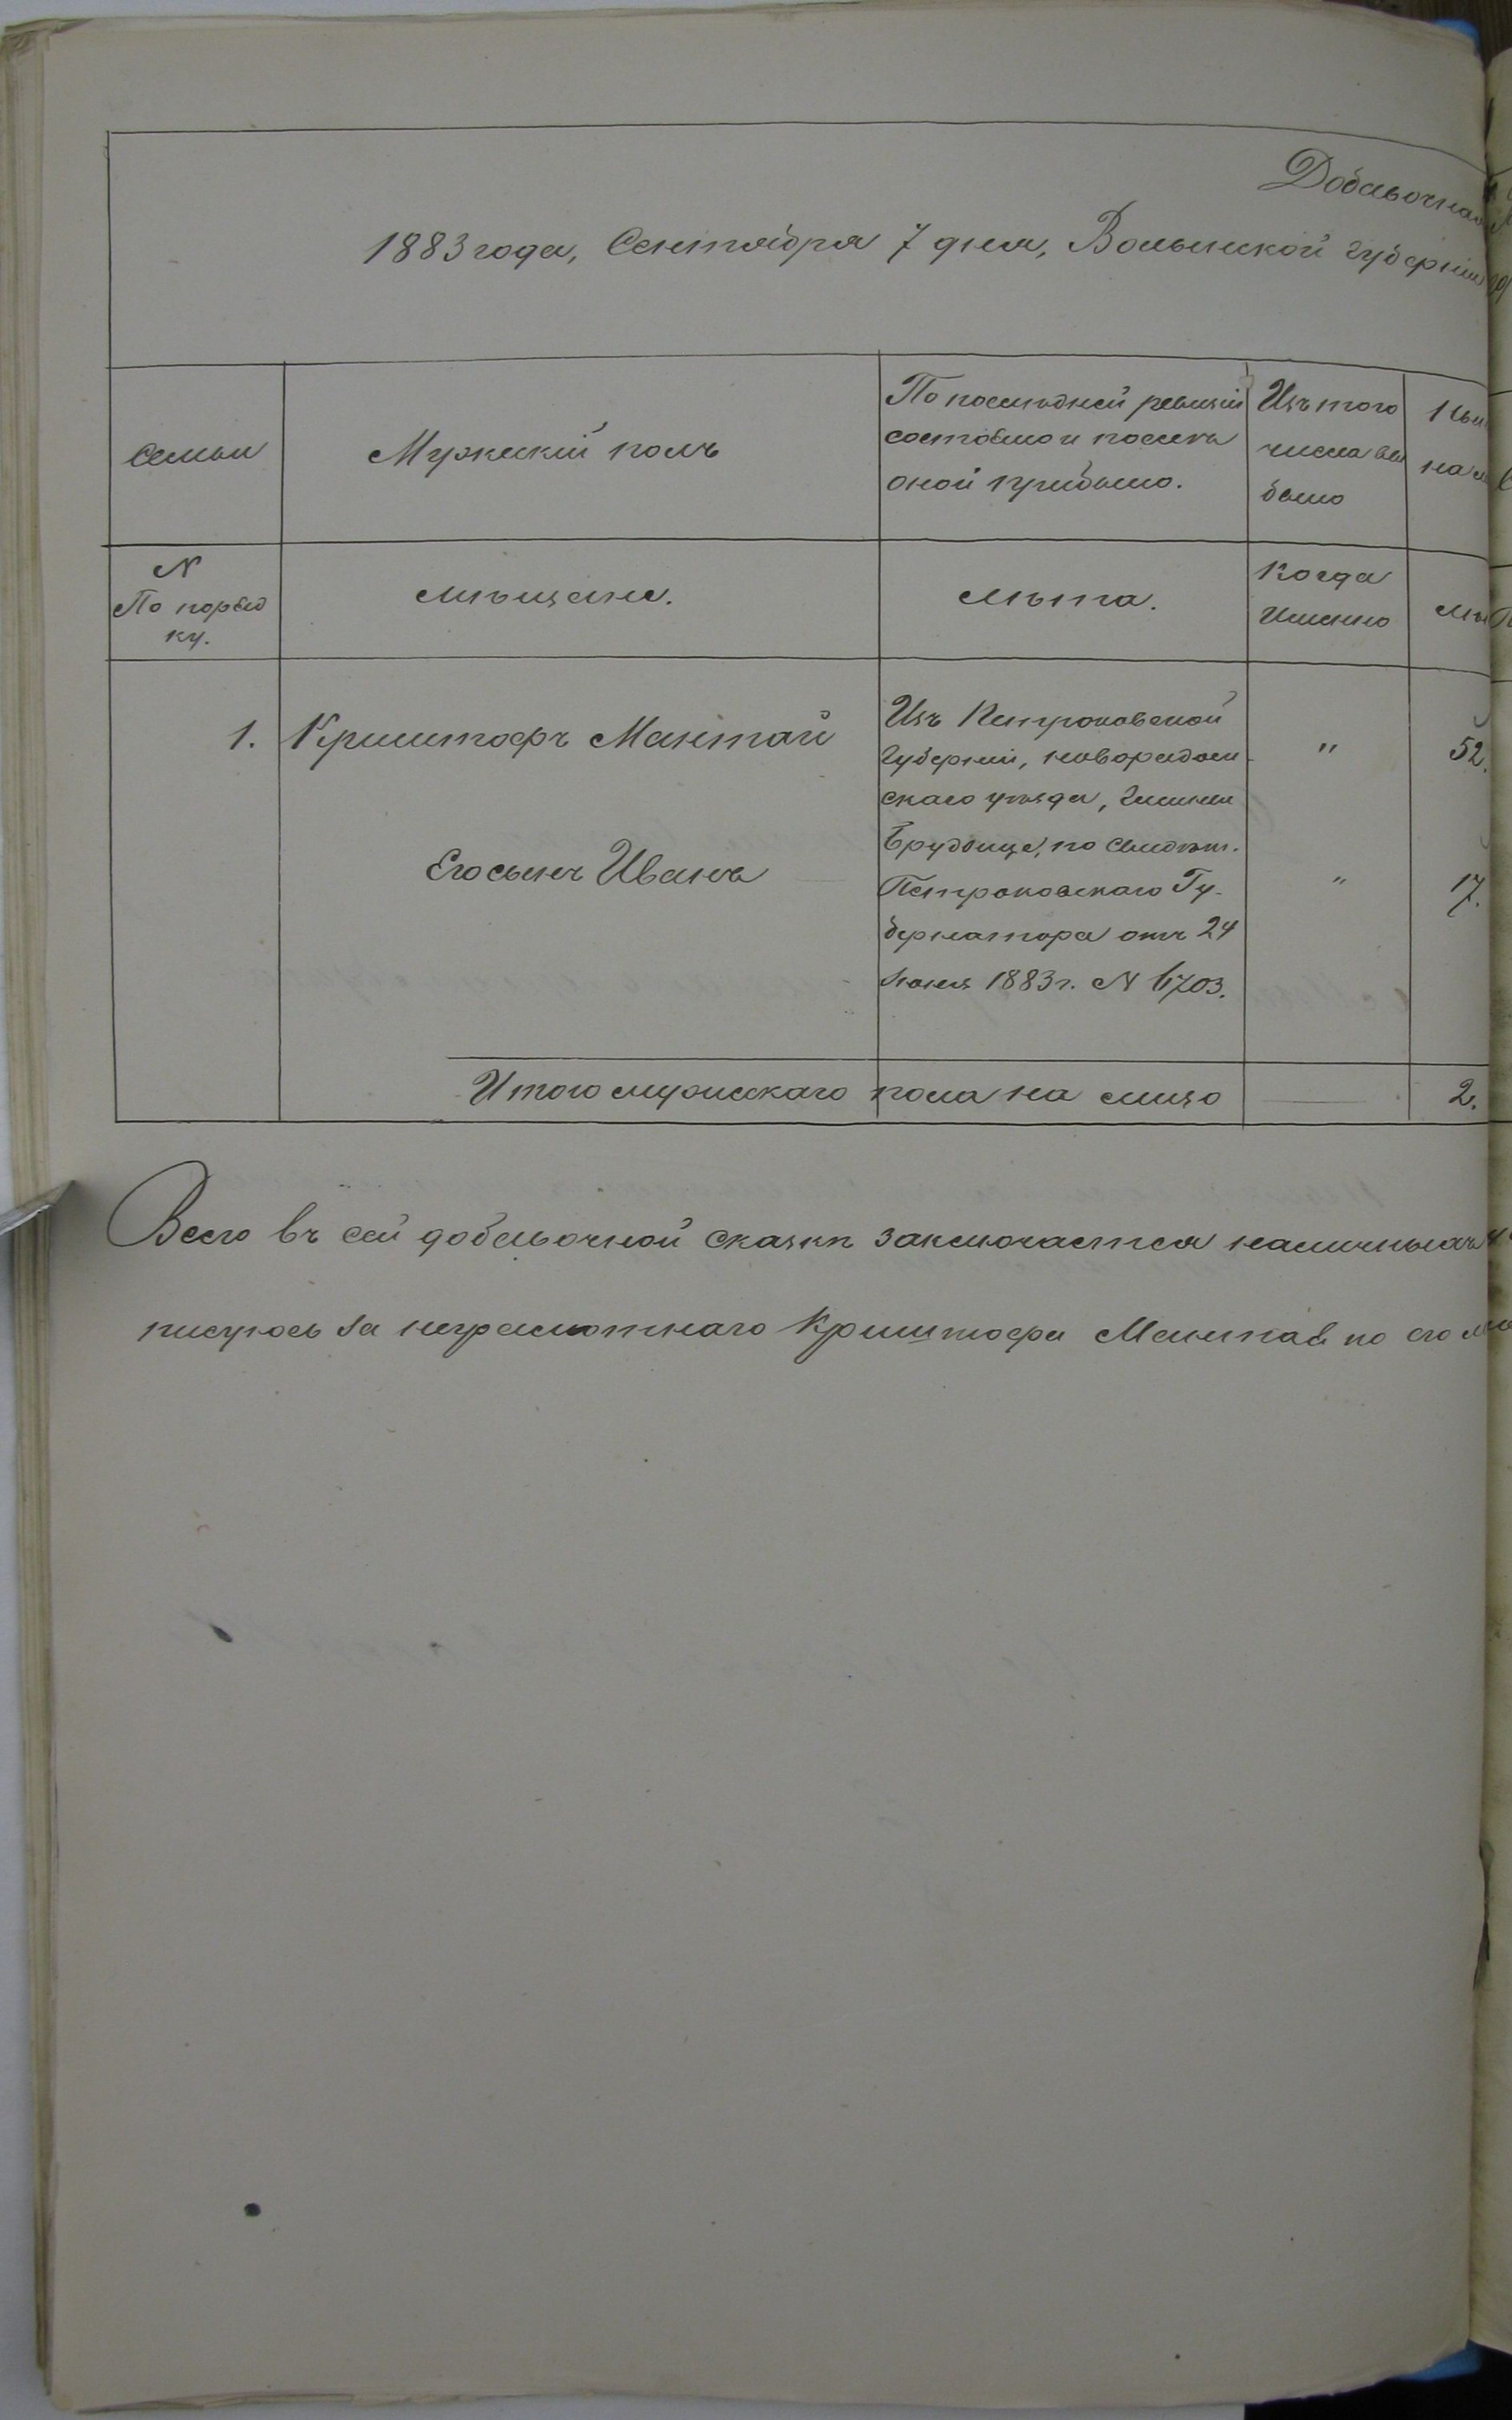 Добавочная
1883 года, Сентября 7 дня, Волынской губерніи
Семьи
Мужескій полъ
По последней ревизіи
состояло и послѣ
оной прибыло.
Изъ того
числа вы
было
Ны
на л
N
По поряд
ку.
мѣщане.
Лѣта.
Когда
Именно
Лѣ
1. Криштофъ Мантай
Изъ Петроковской
Губерніи, новорадом
скаго уѣзда, Гмины
Брудзице, по свидѣт.
Петроковскаго Гу-
бернатора отъ 24
Іюня 1883 г. N 6703.
"
52.
Его сынъ Иванъ
"
17.
Итого мужескаго пола на лицо
2.
Всего въ сей добавочной сказкѣ заключается наличныхъ
писуюсь за неграмотнаго Криштофа Мантая по его